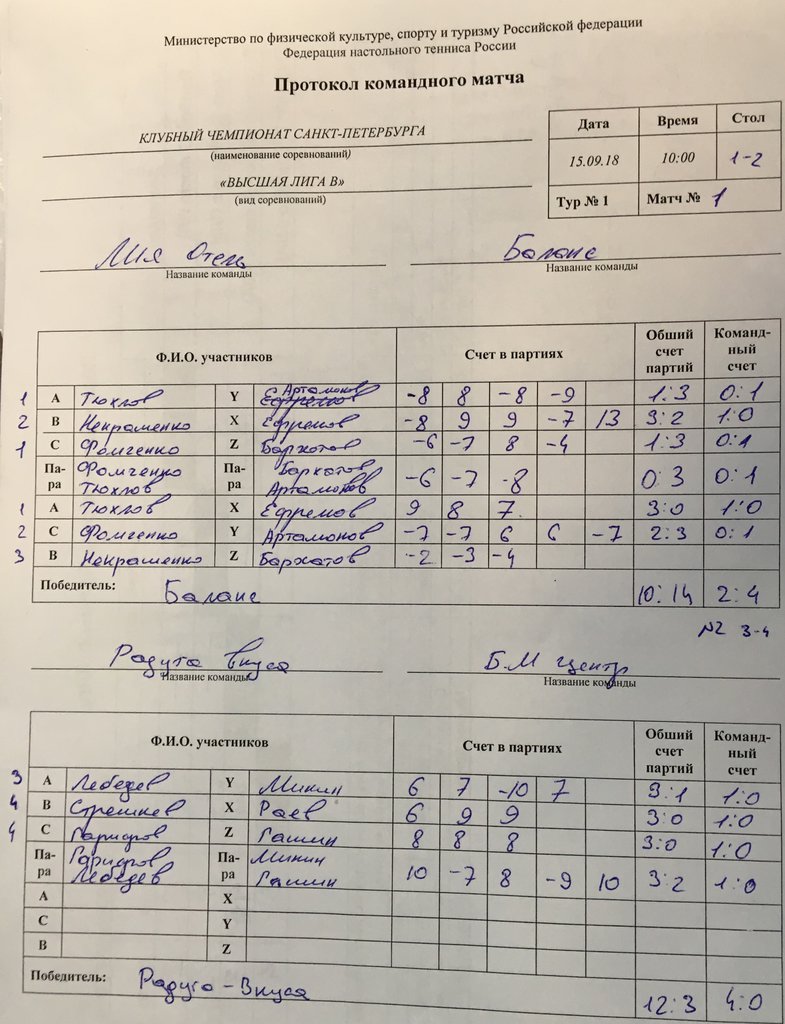 Министерство по физической культуре, спорту и туризму Российской федерации
Федерация настольного тенниса России
Протокол командного матча
КЛУБНЫЙ ЧЕМПИОНАТ САНКТ-ПЕТЕРБУРГА
(наименование соревнований)
«ВЫСШАЯ ЛИГА В»
(вид соревнований)
Дата Время Стол
15.09.18 10:00 1-2
Тур № 1 Матч № 1
Лия Отель Баланс
Название команды Название команды
Ф.И.О. участников Счет в партиях Обший счет партий Команд-ный счет
1 A Тюхлов Y Артамонов -8 8 -8 -9 1:3 0:1
2 B Некрашенко X Ефремов -8 9 9 -7 13 3:2 1:0
1 C Фомченко Z Бархатов -6 -7 8 -4 1:3 0:1
Па-ра Фомченко Тюхлов Па-ра Бархатов Артамонов -6 -7 -8 0:3 0:1
1 A Тюхлов X Ефремов 9 8 7 3:0 1:0
2 C Фомченко Y Артамонов -7 -7 6 6 -7 2:3 0:1
3 B Некрашенко Z Бархатов -2 -3 -4
Победитель: Баланс 10:14 2:4
N2 3-4
Радуга вкуса Б.М Центр
Название команды Название команды
Ф.И.О. участников Счет в партиях Обший счет партий Команд-ный счет
3 A Лебедев Y Микин 6 7 -10 7 3:1 1:0
4 B Стрешнев X Раев 6 9 9 3:0 1:0
4 C Z Гашин 8 8 8 3:0 1:0
Па-ра Лебедев Па-ра Микин Гашин 10 -7 8 -9 10 3:2 1:0
A X
C Y
B Z
Победитель: Радуга-Вкуса 12:3 4:0